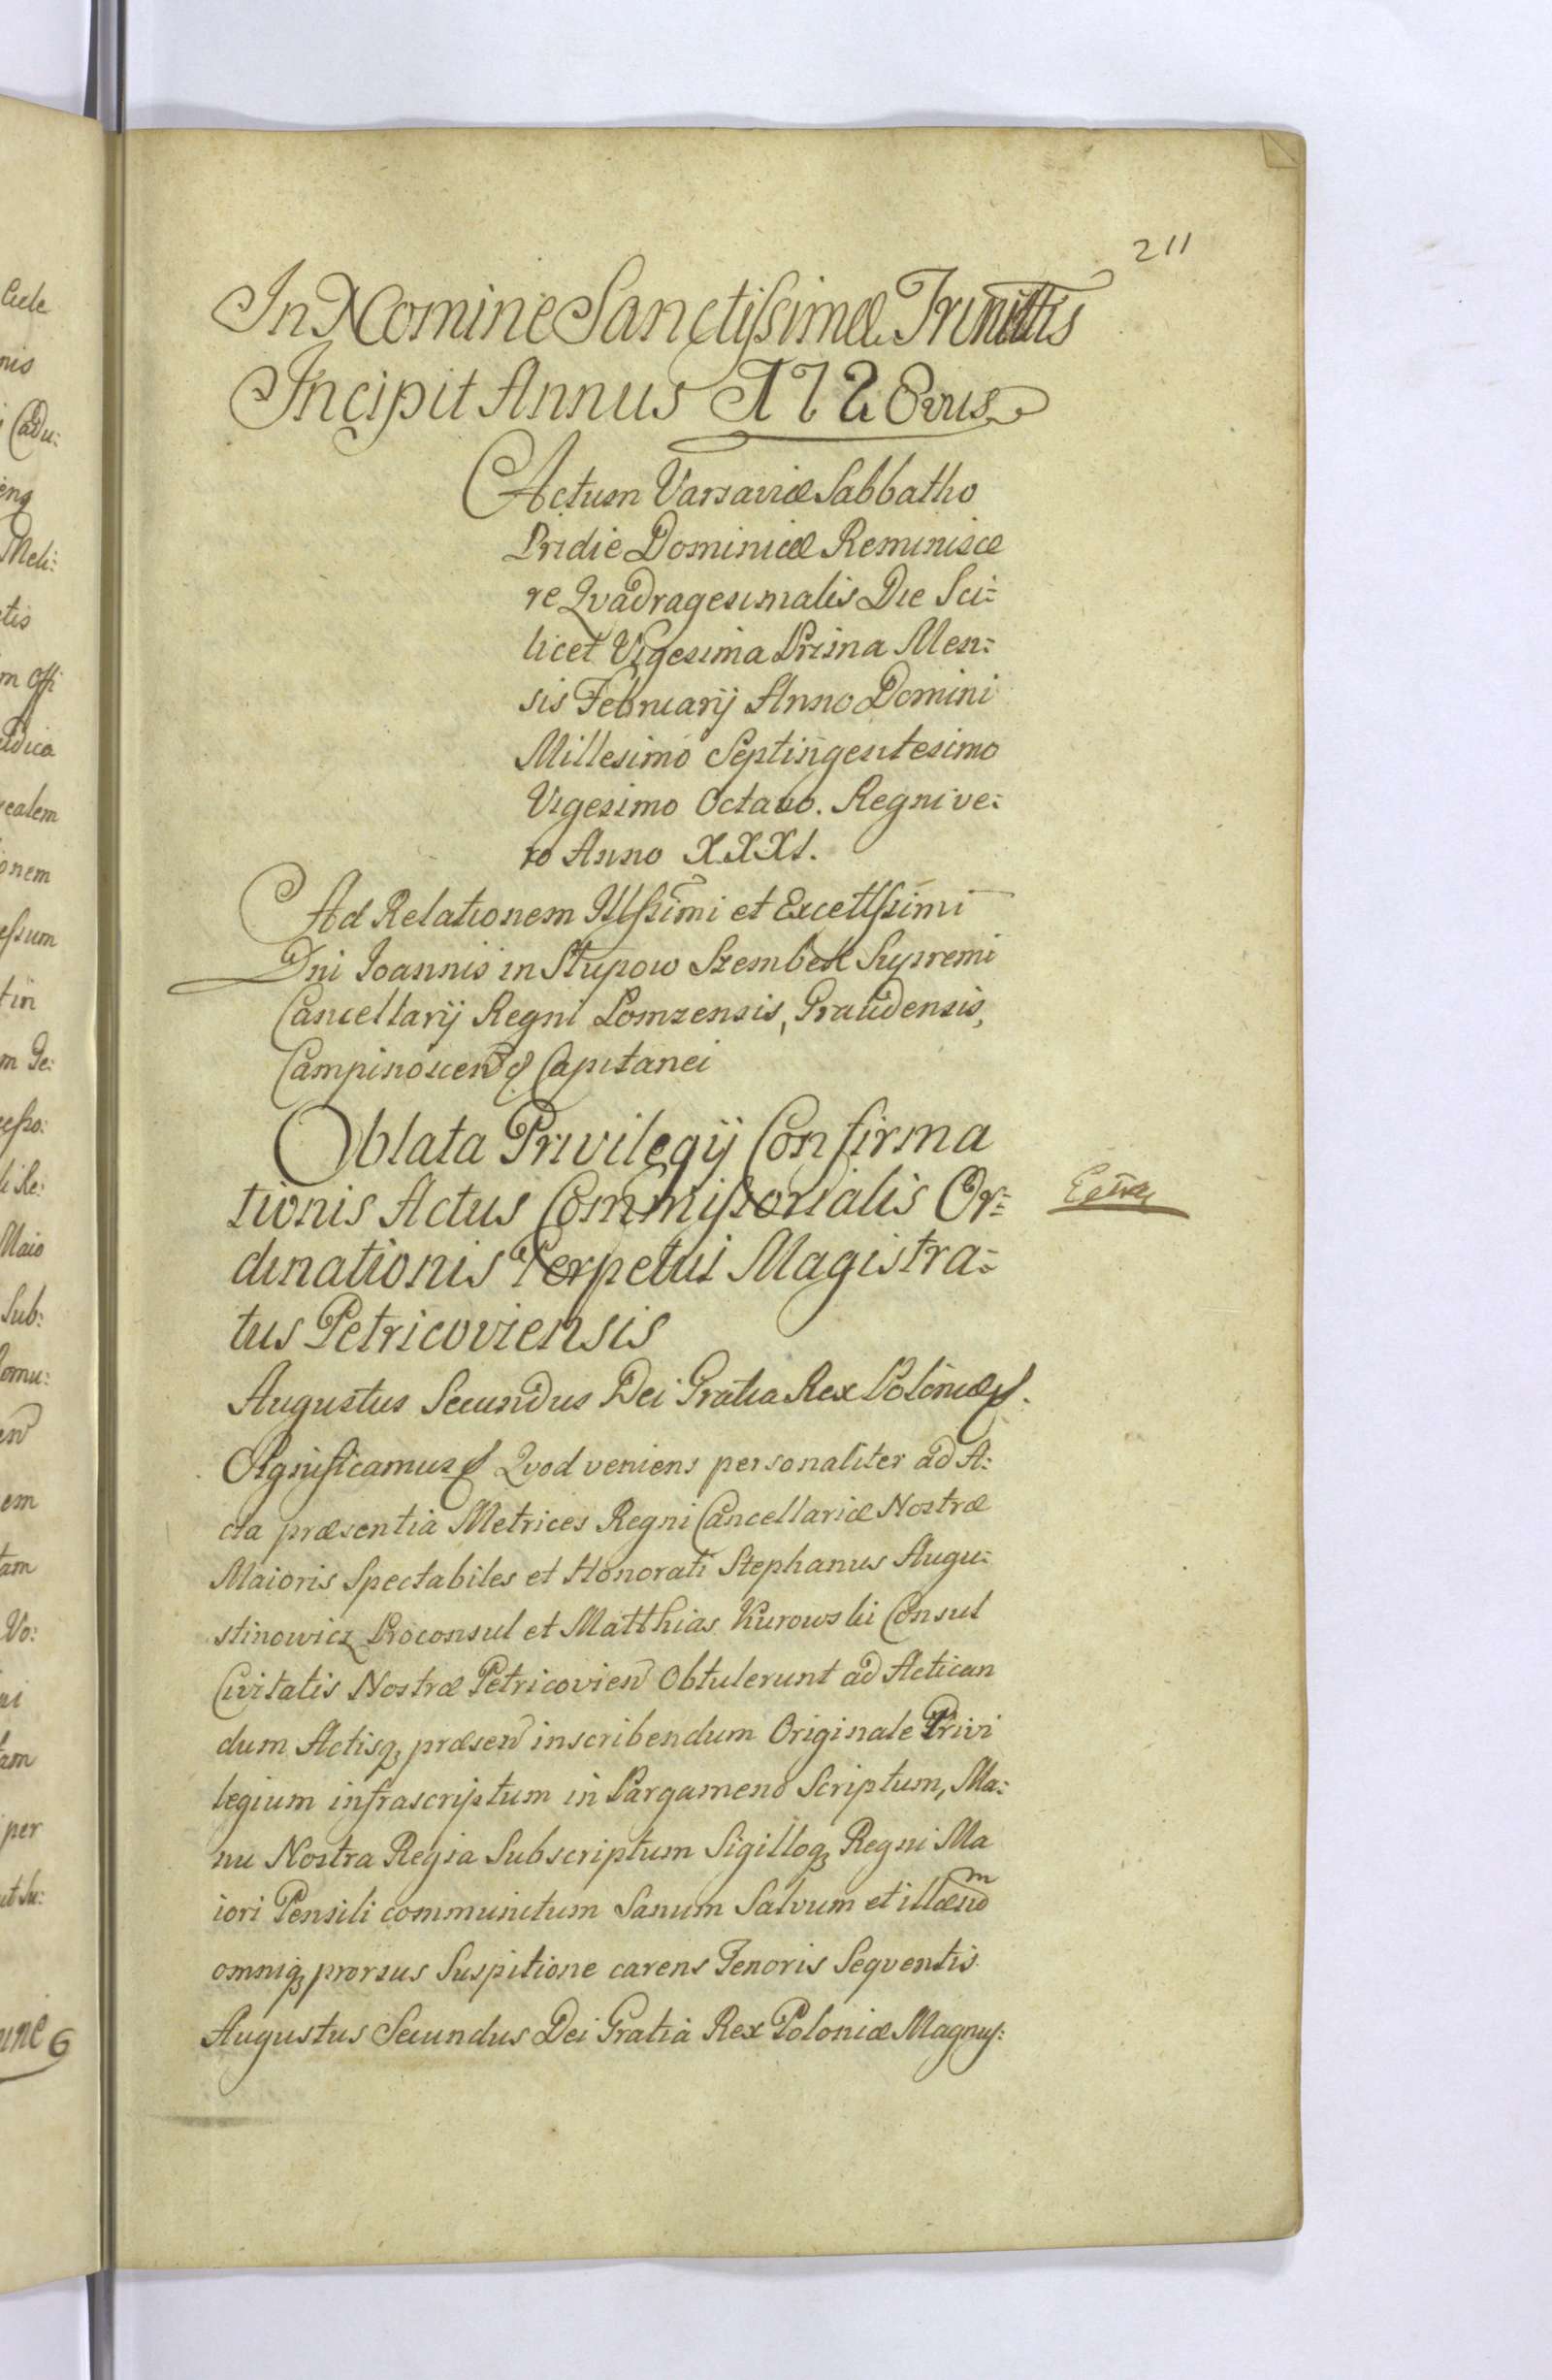 211
In Nomine Sanctissimæ Trinittis
Incipit Annus 1728vus
Actum Varsaviæ Sabbatho
Pridie Dominicæ Reminisce
re Qvadragesimalis Die Sci:
licet Vigesima Prima Men:
sis Februarij Anno Domini
Millesimo Septingentesimo
Vigesimo Octavo. Regni ve:
ro Anno XXXI.
Ad Relationem Illssimi et Excellssimi
Dni Joannis in Słupow Szembek Supremi
Cancellarij Regni Lomzensis, Graudensis,
Campinoscen Capitanei
Oblata Privilegij Confirma
tionis Actus Commissorialis Or:
dinationis Perpetui Magistra:
tus Petricoviensis
Augustus Secundus Dei Gratia Rex Poloniæ
Significamus Qvod veniens personaliter ad A:
cta præsentia Metrices Regni Cancellariæ Nostræ
Maioris Spectabiles et Honorati Stephanus Augu:
stinowicz Proconsul et Matthias Kurowski Consul
Civitatis Nostræ Petricovien Obtulerunt ad Actican
dum Actisq præsen inscribendum Originale Privi
legium infrascriptum in Pargameno Scriptum, Ma:
nu Nostra Regia Subscriptum Sigilloq Regni Ma
iori Pensili communitum Sanum Salvum et
omniq prorsus Suspitione carens Tenoris Seqventis
Augustus Secundus Dei Gratia Rex Poloniæ Magnus: